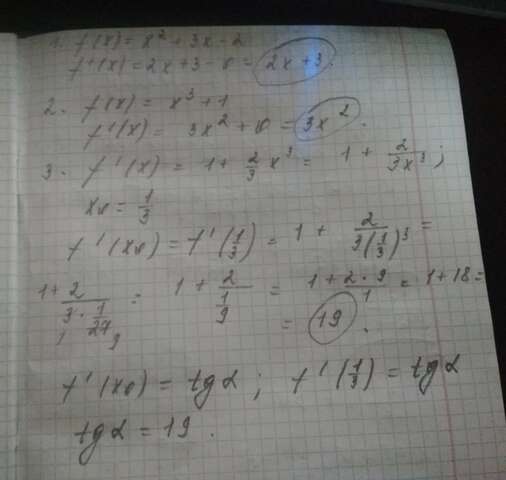 1. f(x) = x² + 3x - 2
f'(x) = 2x + 3 - 0 = 2x + 3.
2. f(x) = x³ + 1
f'(x) = 3x² + 0 = 3x².
3. f'(x) = 1 + 2/3 x³ = 1 + 2/3x³;
x₀ = 1/3
f'(x₀) = f'(1/3) = 1 + 2/3(1/3)³ =
1 + 2/3 · 1/27 9 = 1 + 2/1/9 = 1 + 2 · 9/1 = 1 + 18 =
= 19.
f'(x₀) = tg α; f'(1/3) = tg α
tg α = 19.